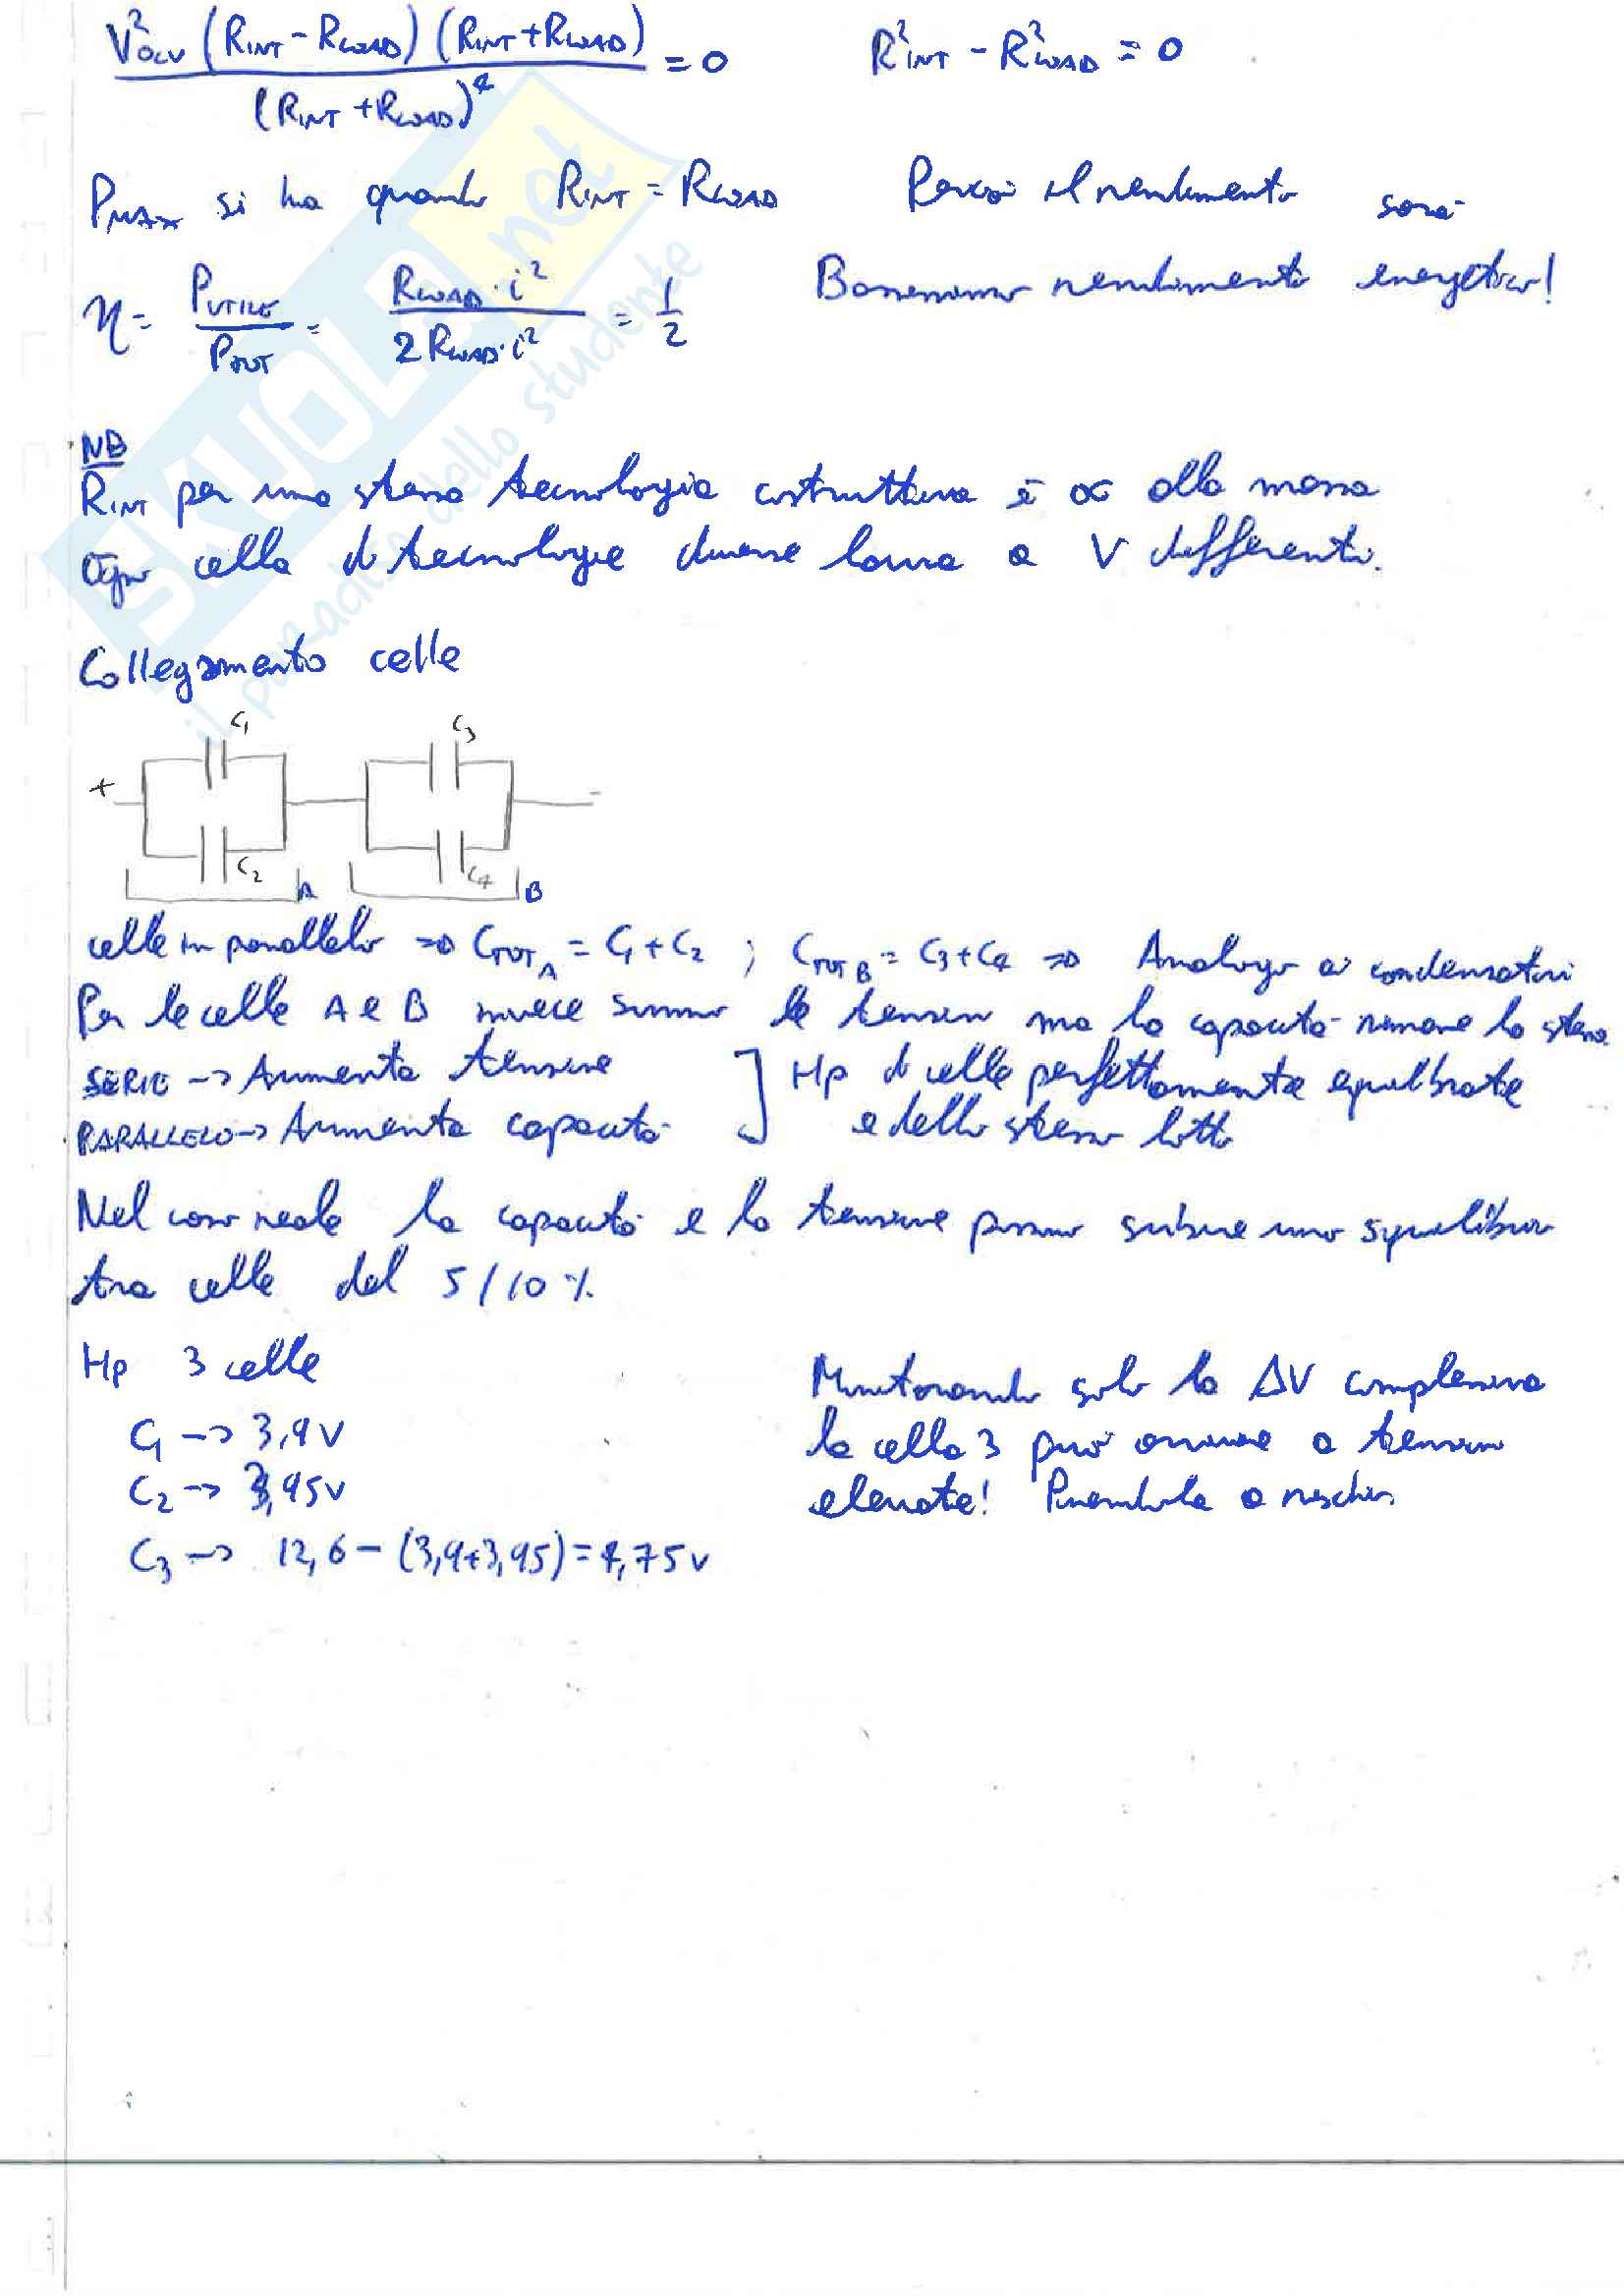 V²OCV (RINT - RLOAD) (RINT + RLOAD) / (RINT + RLOAD)⁴ = 0    R²INT - R²LOAD = 0
PMAX si ha quando RINT = RLOAD    Perciò il rendimento sarà
η = PUTILE / PTOT = RLOAD · i² / 2 RLOAD · i² = 1/2    Bassissimo rendimento energetico!
NB
RINT per una stessa tecnologia costruttiva è ∝ alla massa
Ogni cella di tecnologie diverse lavora a V differenti.
Collegamento celle
C1 C3
+ -
C2 A C4 B
celle in parallelo => CTOTA = C1 + C2 ; CTOTB = C3 + C4 => Analogo ai condensatori
Per le celle A e B invece sommo le tensioni ma la capacità rimane la stessa
SERIE -> Aumenta tensione ] Hp di celle perfettamente equilibrate
PARALLELO -> Aumenta capacità e dello stesso lotto
Nel caso reale la capacità e la tensione possono subire uno squilibrio
tra celle del 5/10 %
Hp 3 celle
C1 -> 3,9V
C2 -> 3,95V
C3 -> 12,6 - (3,9+3,95) = 4,75V
Monitorando solo la ΔV complessiva
la cella 3 può arrivare a tensioni
elevate! Prendila a rischio
SKUOLA.net
il paradiso dello studente